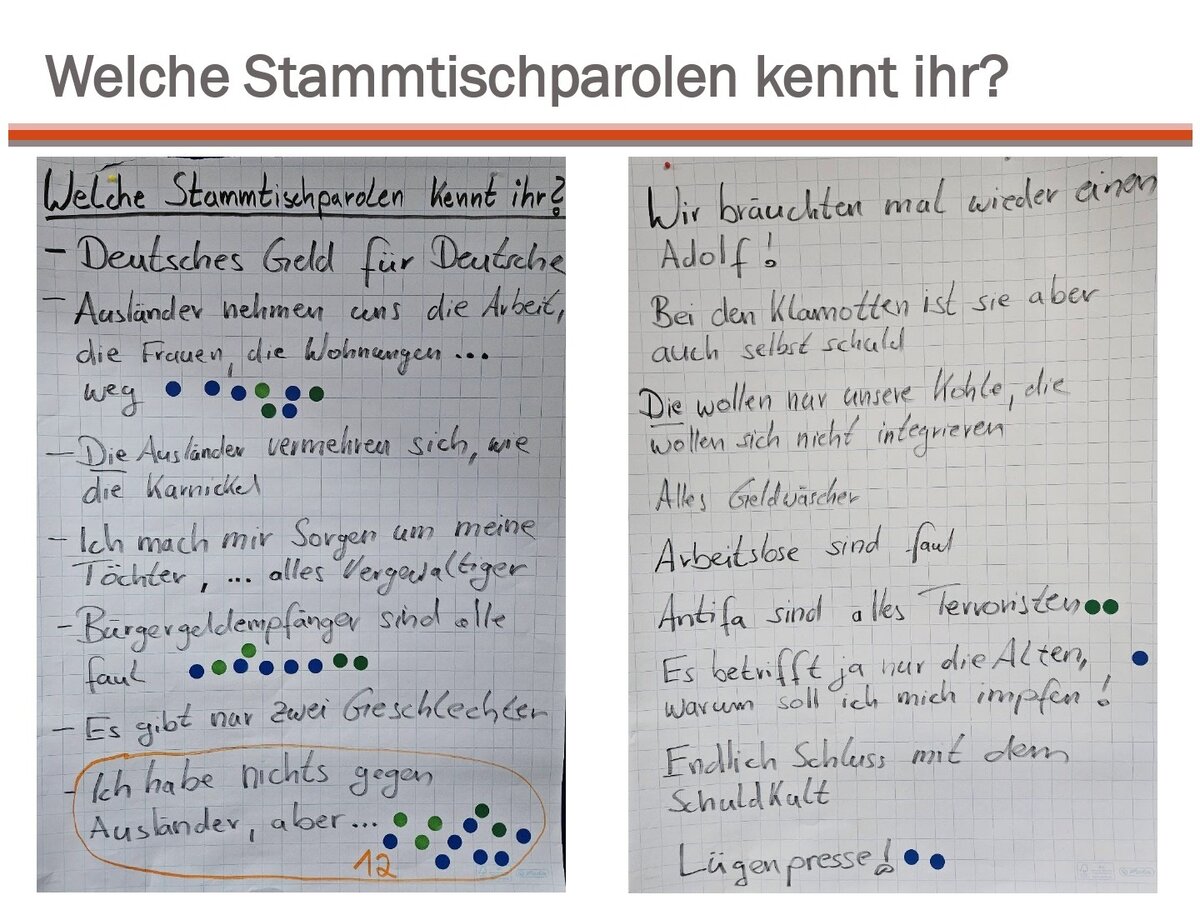 Welche Stammtischparolen kennt ihr?
Welche Stammtischparolen kennt ihr?
- Deutsches Geld für Deutsche
- Ausländer nehmen uns die Arbeit,
die Frauen, die Wohnungen ...
weg
- Die Ausländer vermehren sich, wie
die Karnickel
- Ich mach mir Sorgen um meine
Töchter, ... alles Vergewaltiger
- Bürgergeldempfänger sind alle
faul
- Es gibt nur zwei Geschlechter
- Ich habe nichts gegen
Ausländer, aber ...
12
Wir bräuchten mal wieder einen
Adolf!
Bei den Klamotten ist sie aber
auch selbst schuld
Die wollen nur unsere Kohle, die
wollen sich nicht integrieren
Alles Geldwäscher
Arbeitslose sind faul
Antifa sind alles Terroristen
Es betrifft ja nur die Alten,
warum soll ich mich impfen!
Endlich Schluss mit dem
Schuldkult
Lügenpresse!